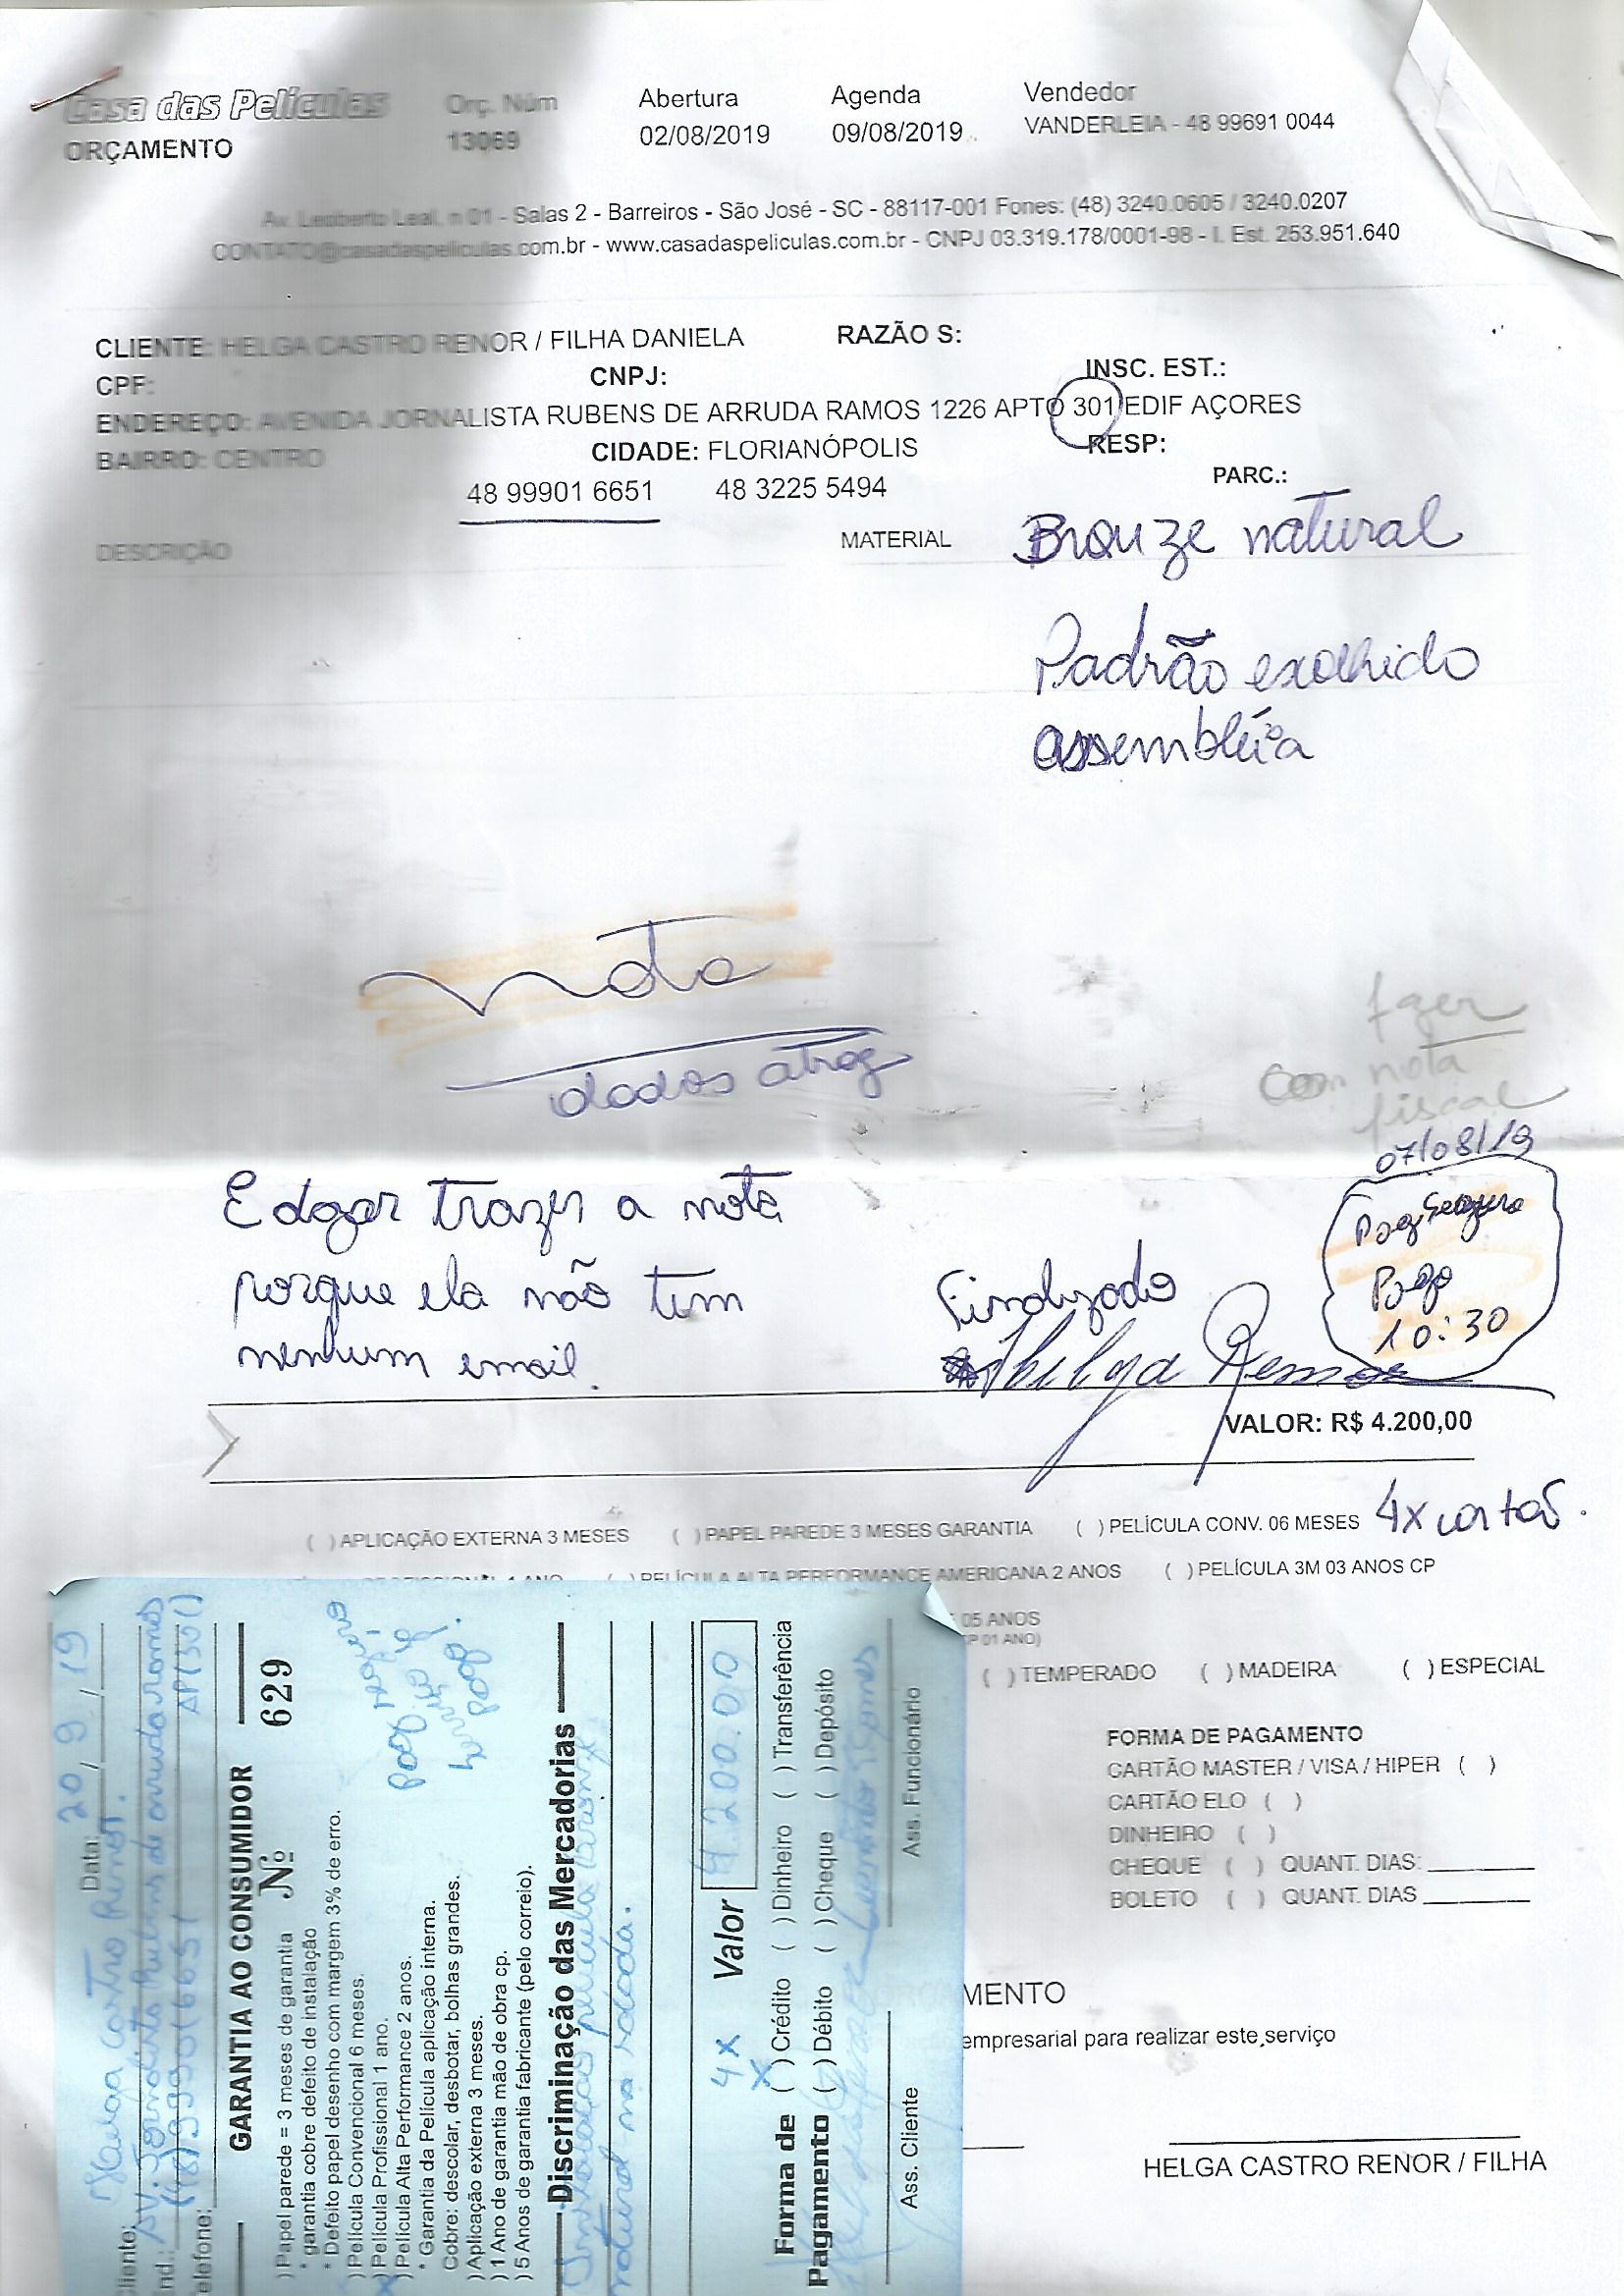 Casa das Películas
ORÇAMENTO
Orç. Núm
13069
Abertura
02/08/2019
Agenda
09/08/2019
Vendedor
VANDERLEIA - 48 99691 0044
Av. Leoberto Leal, n 01 - Salas 2 - Barreiros - São José - SC - 88117-001 Fones: (48) 3240.0605 / 3240.0207
CONTATO@casadaspeliculas.com.br - www.casadaspeliculas.com.br - CNPJ 03.319.178/0001-98 - I. Est. 253.951.640
CLIENTE: HELGA CASTRO RENOR / FILHA DANIELA RAZÃO S:
CPF: CNPJ: INSC. EST.:
ENDEREÇO: AVENIDA JORNALISTA RUBENS DE ARRUDA RAMOS 1226 APTO 301 EDIF AÇORES
BAIRRO: CENTRO CIDADE: FLORIANÓPOLIS RESP:
PARC.:
48 99901 6651 48 3225 5494
DESCRIÇÃO MATERIAL
Bronze natural
Padrão
assembléia
nota
dados atraz
fazer
com nota
fiscal
07/08/19
Pag Seguro
Pago
10:30
Edgar trazer a nota
porque ela não tem
nenhum email.
Finalizado
Helga Renor
VALOR: R$ 4.200,00
4x cartão.
( ) APLICAÇÃO EXTERNA 3 MESES ( ) PAPEL PAREDE 3 MESES GARANTIA ( ) PELÍCULA CONV. 06 MESES
( ) PELÍCULA ALTA PERFORMANCE AMERICANA 2 ANOS ( ) PELÍCULA 3M 03 ANOS CP
05 ANOS
CP 01 ANO)
( ) TEMPERADO ( ) MADEIRA ( ) ESPECIAL
FORMA DE PAGAMENTO
CARTÃO MASTER / VISA / HIPER ( )
CARTÃO ELO ( )
DINHEIRO ( )
CHEQUE ( ) QUANT. DIAS:
BOLETO ( ) QUANT. DIAS
MENTO
empresarial para realizar este serviço
HELGA CASTRO RENOR / FILHA
Data: 20/9/19
Cliente: Helga castro Renor.
End.: AV. Jornalista Rubens de arruda ramos
AP(301)
Telefone: (48) 999016651
GARANTIA AO CONSUMIDOR
Nº 629
) Papel parede = 3 meses de garantia
* garantia cobre defeito de instalação
* Defeito papel desenho com margem 3% de erro.
) Película Convencional 6 meses.
) Película Profissional 1 ano.
) Película Alta Performance 2 anos.
* Garantia da Película aplicação interna.
Cobre: descolar, desbotar, bolhas grandes.
) Aplicação externa 3 meses.
) 1 Ano de garantia mão de obra cp.
) 5 Anos de garantia fabricante (pelo correio).
pag seguro
pago
Discriminação das Mercadorias
Instalação película bronze
natural na sacada.
4x Valor 4.200.00
Forma de Pagamento
(X) Crédito ( ) Dinheiro ( ) Transferência
( ) Débito ( ) Cheque ( ) Depósito
Ass. Cliente Ass. Funcionário